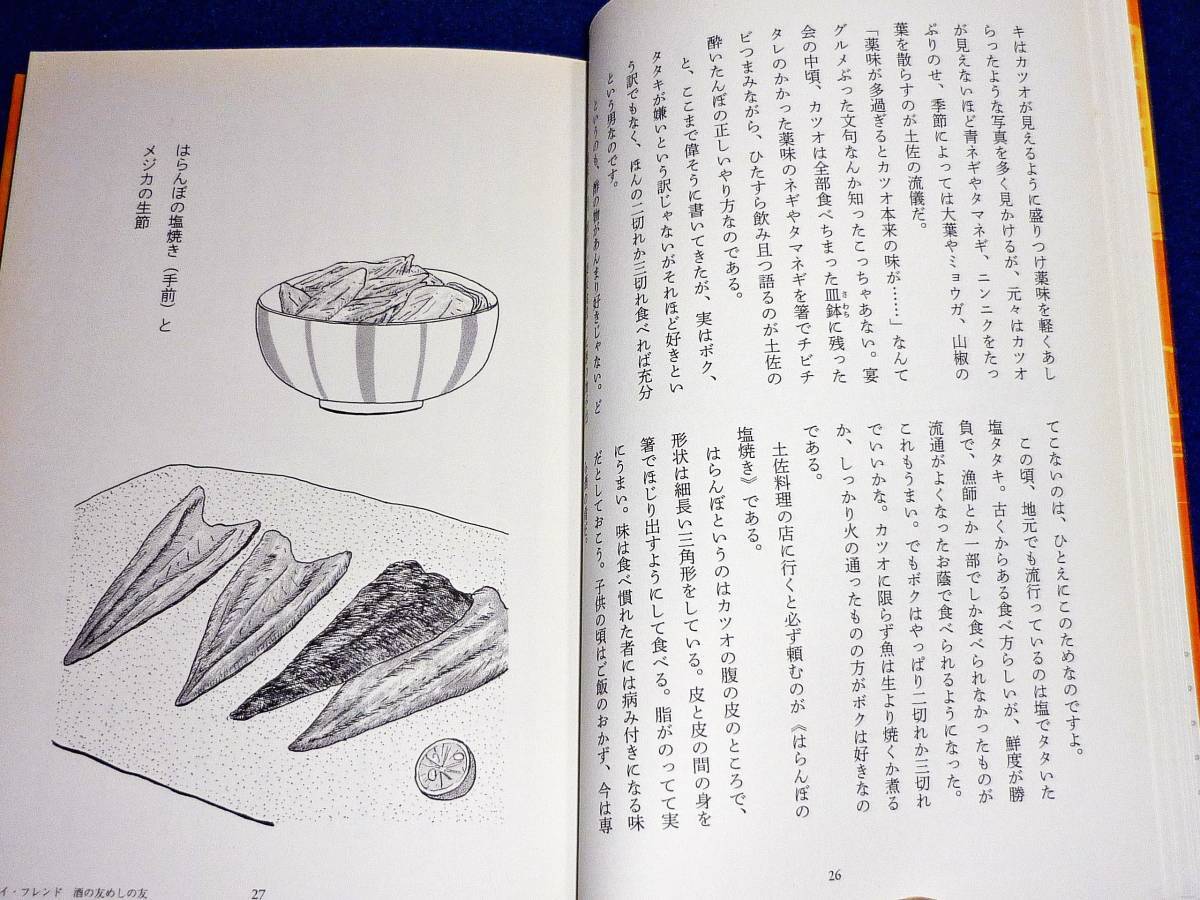 キはカツオが見えるように盛りつけ薬味を軽くあし
らったような写真を多く見かけるが、元々はカツオ
が見えないほど青ネギやタマネギ、ニンニクをたっ
ぷりのせ、季節によっては大葉やミョウガ、山椒の
葉を散らすのが土佐の流儀だ。
「薬味が多過ぎるとカツオ本来の味が……」なんて
グルメぶった文句なんか知ったこっちゃあない。宴
会の中頃、カツオは全部食べちまった皿鉢に残った
さわち
タレのかかった薬味のネギやタマネギを箸でチビチ
ビつまみながら、ひたすら飲み且つ語るのが土佐の
酔いたんぼの正しいやり方なのである。
と、ここまで偉そうに書いてきたが、実はボク、
タタキが嫌いという訳じゃないがそれほど好きとい
う訳でもなく、ほんの二切れか三切れ食べれば充分
という男なのです。
というのも、酢の物があんまり好きじゃない。ど
てこないのは、ひとえにこのためなのですよ。
この頃、地元でも流行っているのは塩でタタいた
塩タタキ。古くからある食べ方らしいが、鮮度が勝
負で、漁師とか一部でしか食べられなかったものが
流通がよくなったお蔭で食べられるようになった。
これもうまい。でもボクはやっぱり二切れか三切れ
でいいかな。カツオに限らず魚は生より焼くか煮る
か、しっかり火の通ったものの方がボクは好きなの
である。
土佐料理の店に行くと必ず頼むのが《はらんぼの
塩焼き》である。
はらんぼというのはカツオの腹の皮のところで、
形状は細長い三角形をしている。皮と皮の間の身を
箸でほじり出すようにして食べる。脂がのってて実
にうまい。味は食べ慣れた者には病み付きになる味
だとしておこう。子供の頃はご飯のおかず、今は専
26
はらんぼの塩焼き（手前）と
メジカの生節
イ・フレンド 酒の友めしの友
27